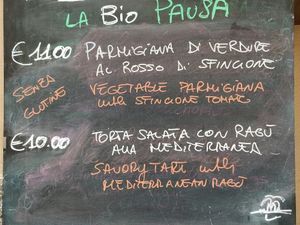 LA BIO PAUSA
€11.00 PARMIGIANA DI VERDURE
AL ROSSO DI SFINCIONE
SENZA GLUTINE
VEGETABLE PARMIGIANA
with SFINCIONE TOMATO
€10.00 TORTA SALATA CON RAGÙ
ALLA MEDITERRANEA
SAVORY TART with
MEDITERRANEAN RAGÙ